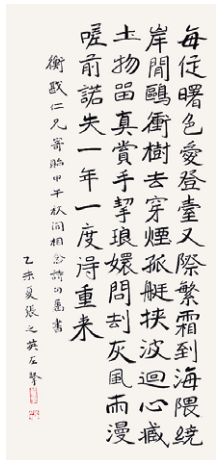 每從曙色愛登臺又際繁霜到海隈繞
岸閒鷗衝樹去穿煙孤艇挟波迴心藏
土物畱真賞手挈琅嬛問刦灰風雨漫
嗟前諾失一年一度得重来
仁兄寄貽甲午秋相念詩舊書
乙未夏張之英左